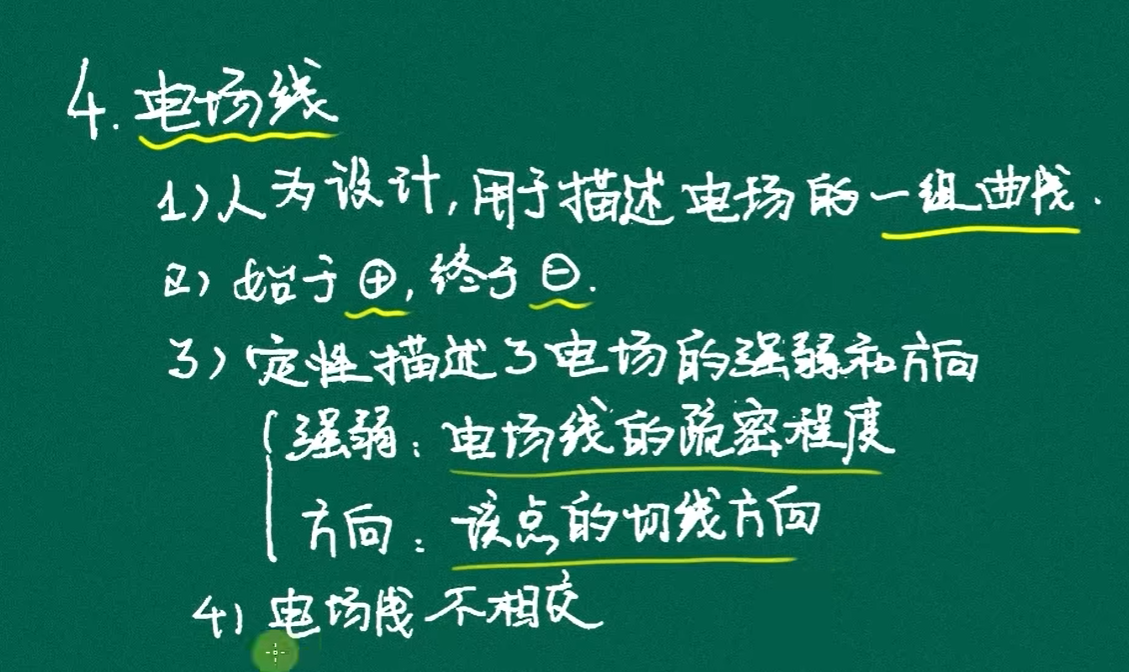 4. 电场线
1) 人为设计, 用于描述电场的一组曲线.
2) 始于⊕, 终于⊖.
3) 定性描述了电场的强弱和方向
强弱: 电场线的疏密程度
方向: 该点的切线方向
4) 电场线不相交